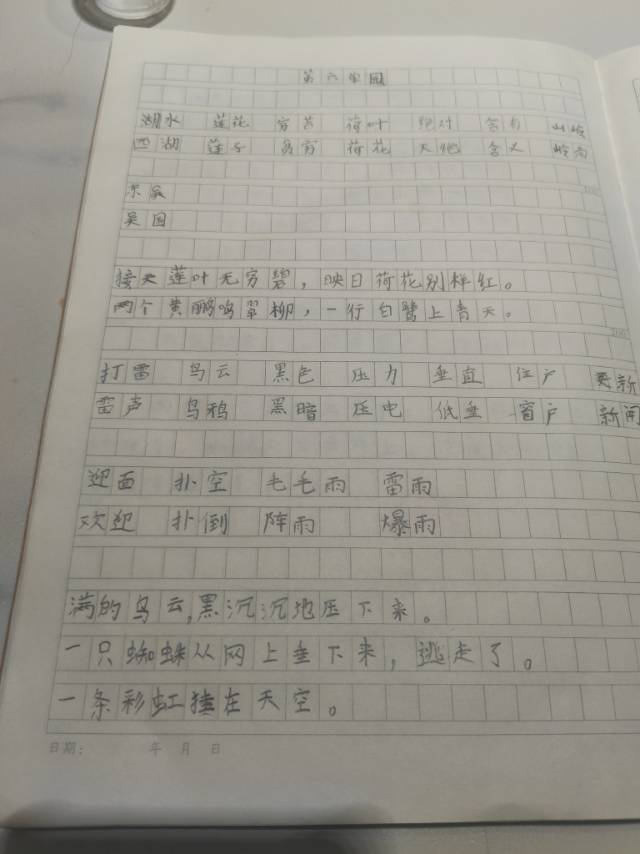 第六单园
湖水 莲花 穷苦 荷叶 绝对 含有 山岭
西湖 莲子 贫穷 荷花 天绝 含义 岭南
东吴
吴国
接天莲叶无穷碧，映日荷花别样红。
两个黄鹂鸣翠柳，一行白鹭上青天。
打雷 乌云 黑色 压力 垂直 住户 更新
雷声 乌鸦 黑暗 压电 低垂 窗户 新闻
迎面 扑空 毛毛雨 雷雨
欢迎 扑倒 阵雨 爆雨
满的乌云,黑沉沉地压下来。
一只蜘蛛从网上垂下来，逃走了。
一条彩虹挂在天空。
日期： 年 月 日